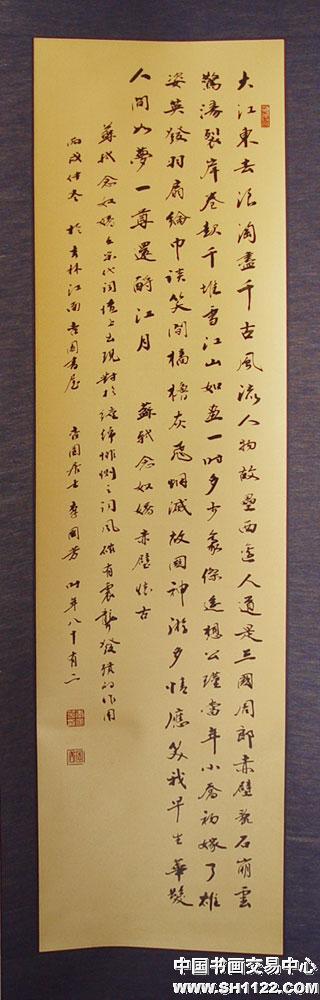 大江東去浪淘盡千古風流人物故壘西邊人道是三國周郎赤壁亂石崩雲
驚濤裂岸卷起千堆雪江山如畫一時多少豪傑遙想公瑾當年小喬初嫁了雄
姿英發羽扇綸巾談笑間檣櫓灰飛煙滅故國神游多情應笑我早生華髮
人間如夢一尊還酹江月 蘇軾念奴嬌赤壁懷古
蘇軾念奴嬌在宋代詞壇上出現對於纏綿悱惻之詞風確有震聾發聵的作用
丙戌仲冬於吉林江南 園書屋 園居士李國芳 時年八十有二
中国书画交易中心
www.SH1122.com